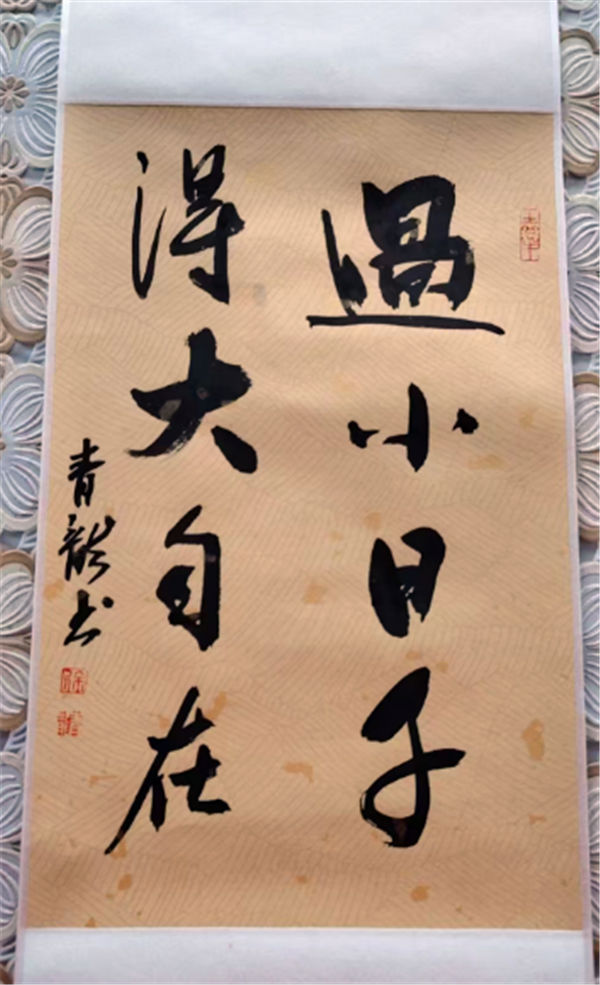 過小日子
得大自在
青龍书